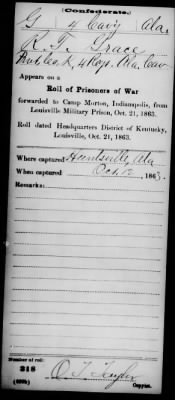 (Confederate.)
G 4 Cavy Ala.
R. T. Grace
Co. K, 4 Reg. Ala. Cav
Appears on a
Roll of Prisoners of War
forwarded to Camp Morton, Indianapolis, from
Louisville Military Prison, Oct. 21, 1863.
Roll dated Headquarters District of Kentucky,
Louisville, Oct. 21, 1863.
Where captured Huntsville, Ala
When captured Oct. 12, 1863.
Remarks:
Number of roll:
218
O T Taylor
Copyist.